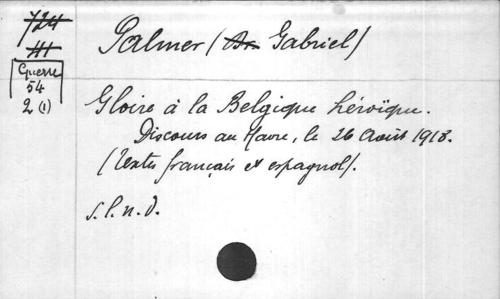 724
III
Guerre
54
2 (1)
Palmer (Gabriel)
Gloire à la Belgique héroïque.
Discours au Havre, le 26 Août 1918.
(Textes français et espagnol).
s.l.n.d.